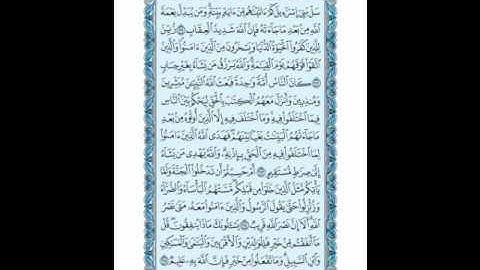 سَلْ بَنِىٓ إِسْرَٰٓءِيلَ كَمْ ءَاتَيْنَٰهُم مِّنْ ءَايَةٍۭ بَيِّنَةٍ ۗ وَمَن يُبَدِّلْ نِعْمَةَ
ٱللَّهِ مِنۢ بَعْدِ مَا جَآءَتْهُ فَإِنَّ ٱللَّهَ شَدِيدُ ٱلْعِقَابِ ۝ زُيِّنَ
لِلَّذِينَ كَفَرُوا۟ ٱلْحَيَوٰةُ ٱلدُّنْيَا وَيَسْخَرُونَ مِنَ ٱلَّذِينَ ءَامَنُوا۟ ۘ وَٱلَّذِينَ
ٱتَّقَوْا۟ فَوْقَهُمْ يَوْمَ ٱلْقِيَٰمَةِ ۗ وَٱللَّهُ يَرْزُقُ مَن يَشَآءُ بِغَيْرِ حِسَابٍ
۝ كَانَ ٱلنَّاسُ أُمَّةً وَٰحِدَةً فَبَعَثَ ٱللَّهُ ٱلنَّبِيِّـۧنَ مُبَشِّرِينَ
وَمُنذِرِينَ وَأَنزَلَ مَعَهُمُ ٱلْكِتَٰبَ بِٱلْحَقِّ لِيَحْكُمَ بَيْنَ ٱلنَّاسِ
فِيمَا ٱخْتَلَفُوا۟ فِيهِ ۚ وَمَا ٱخْتَلَفَ فِيهِ إِلَّا ٱلَّذِينَ أُوتُوهُ مِنۢ بَعْدِ
مَا جَآءَتْهُمُ ٱلْبَيِّنَٰتُ بَغْيًۢا بَيْنَهُمْ ۖ فَهَدَى ٱللَّهُ ٱلَّذِينَ ءَامَنُوا۟
لِمَا ٱخْتَلَفُوا۟ فِيهِ مِنَ ٱلْحَقِّ بِإِذْنِهِۦ ۗ وَٱللَّهُ يَهْدِى مَن يَشَآءُ
إِلَىٰ صِرَٰطٍ مُّسْتَقِيمٍ ۝ أَمْ حَسِبْتُمْ أَن تَدْخُلُوا۟ ٱلْجَنَّةَ وَلَمَّا
يَأْتِكُم مَّثَلُ ٱلَّذِينَ خَلَوْا۟ مِن قَبْلِكُم ۖ مَّسَّتْهُمُ ٱلْبَأْسَآءُ وَٱلضَّرَّآءُ
وَزُلْزِلُوا۟ حَتَّىٰ يَقُولَ ٱلرَّسُولُ وَٱلَّذِينَ ءَامَنُوا۟ مَعَهُۥ مَتَىٰ نَصْرُ
ٱللَّهِ ۗ أَلَآ إِنَّ نَصْرَ ٱللَّهِ قَرِيبٌ ۝ يَسْـَٔلُونَكَ مَاذَا يُنفِقُونَ ۖ قُلْ
مَآ أَنفَقْتُم مِّنْ خَيْرٍ فَلِلْوَٰلِدَيْنِ وَٱلْأَقْرَبِينَ وَٱلْيَتَٰمَىٰ وَٱلْمَسَٰكِينِ
وَٱبْنِ ٱلسَّبِيلِ ۗ وَمَا تَفْعَلُوا۟ مِنْ خَيْرٍ فَإِنَّ ٱللَّهَ بِهِۦ عَلِيمٌ ۝